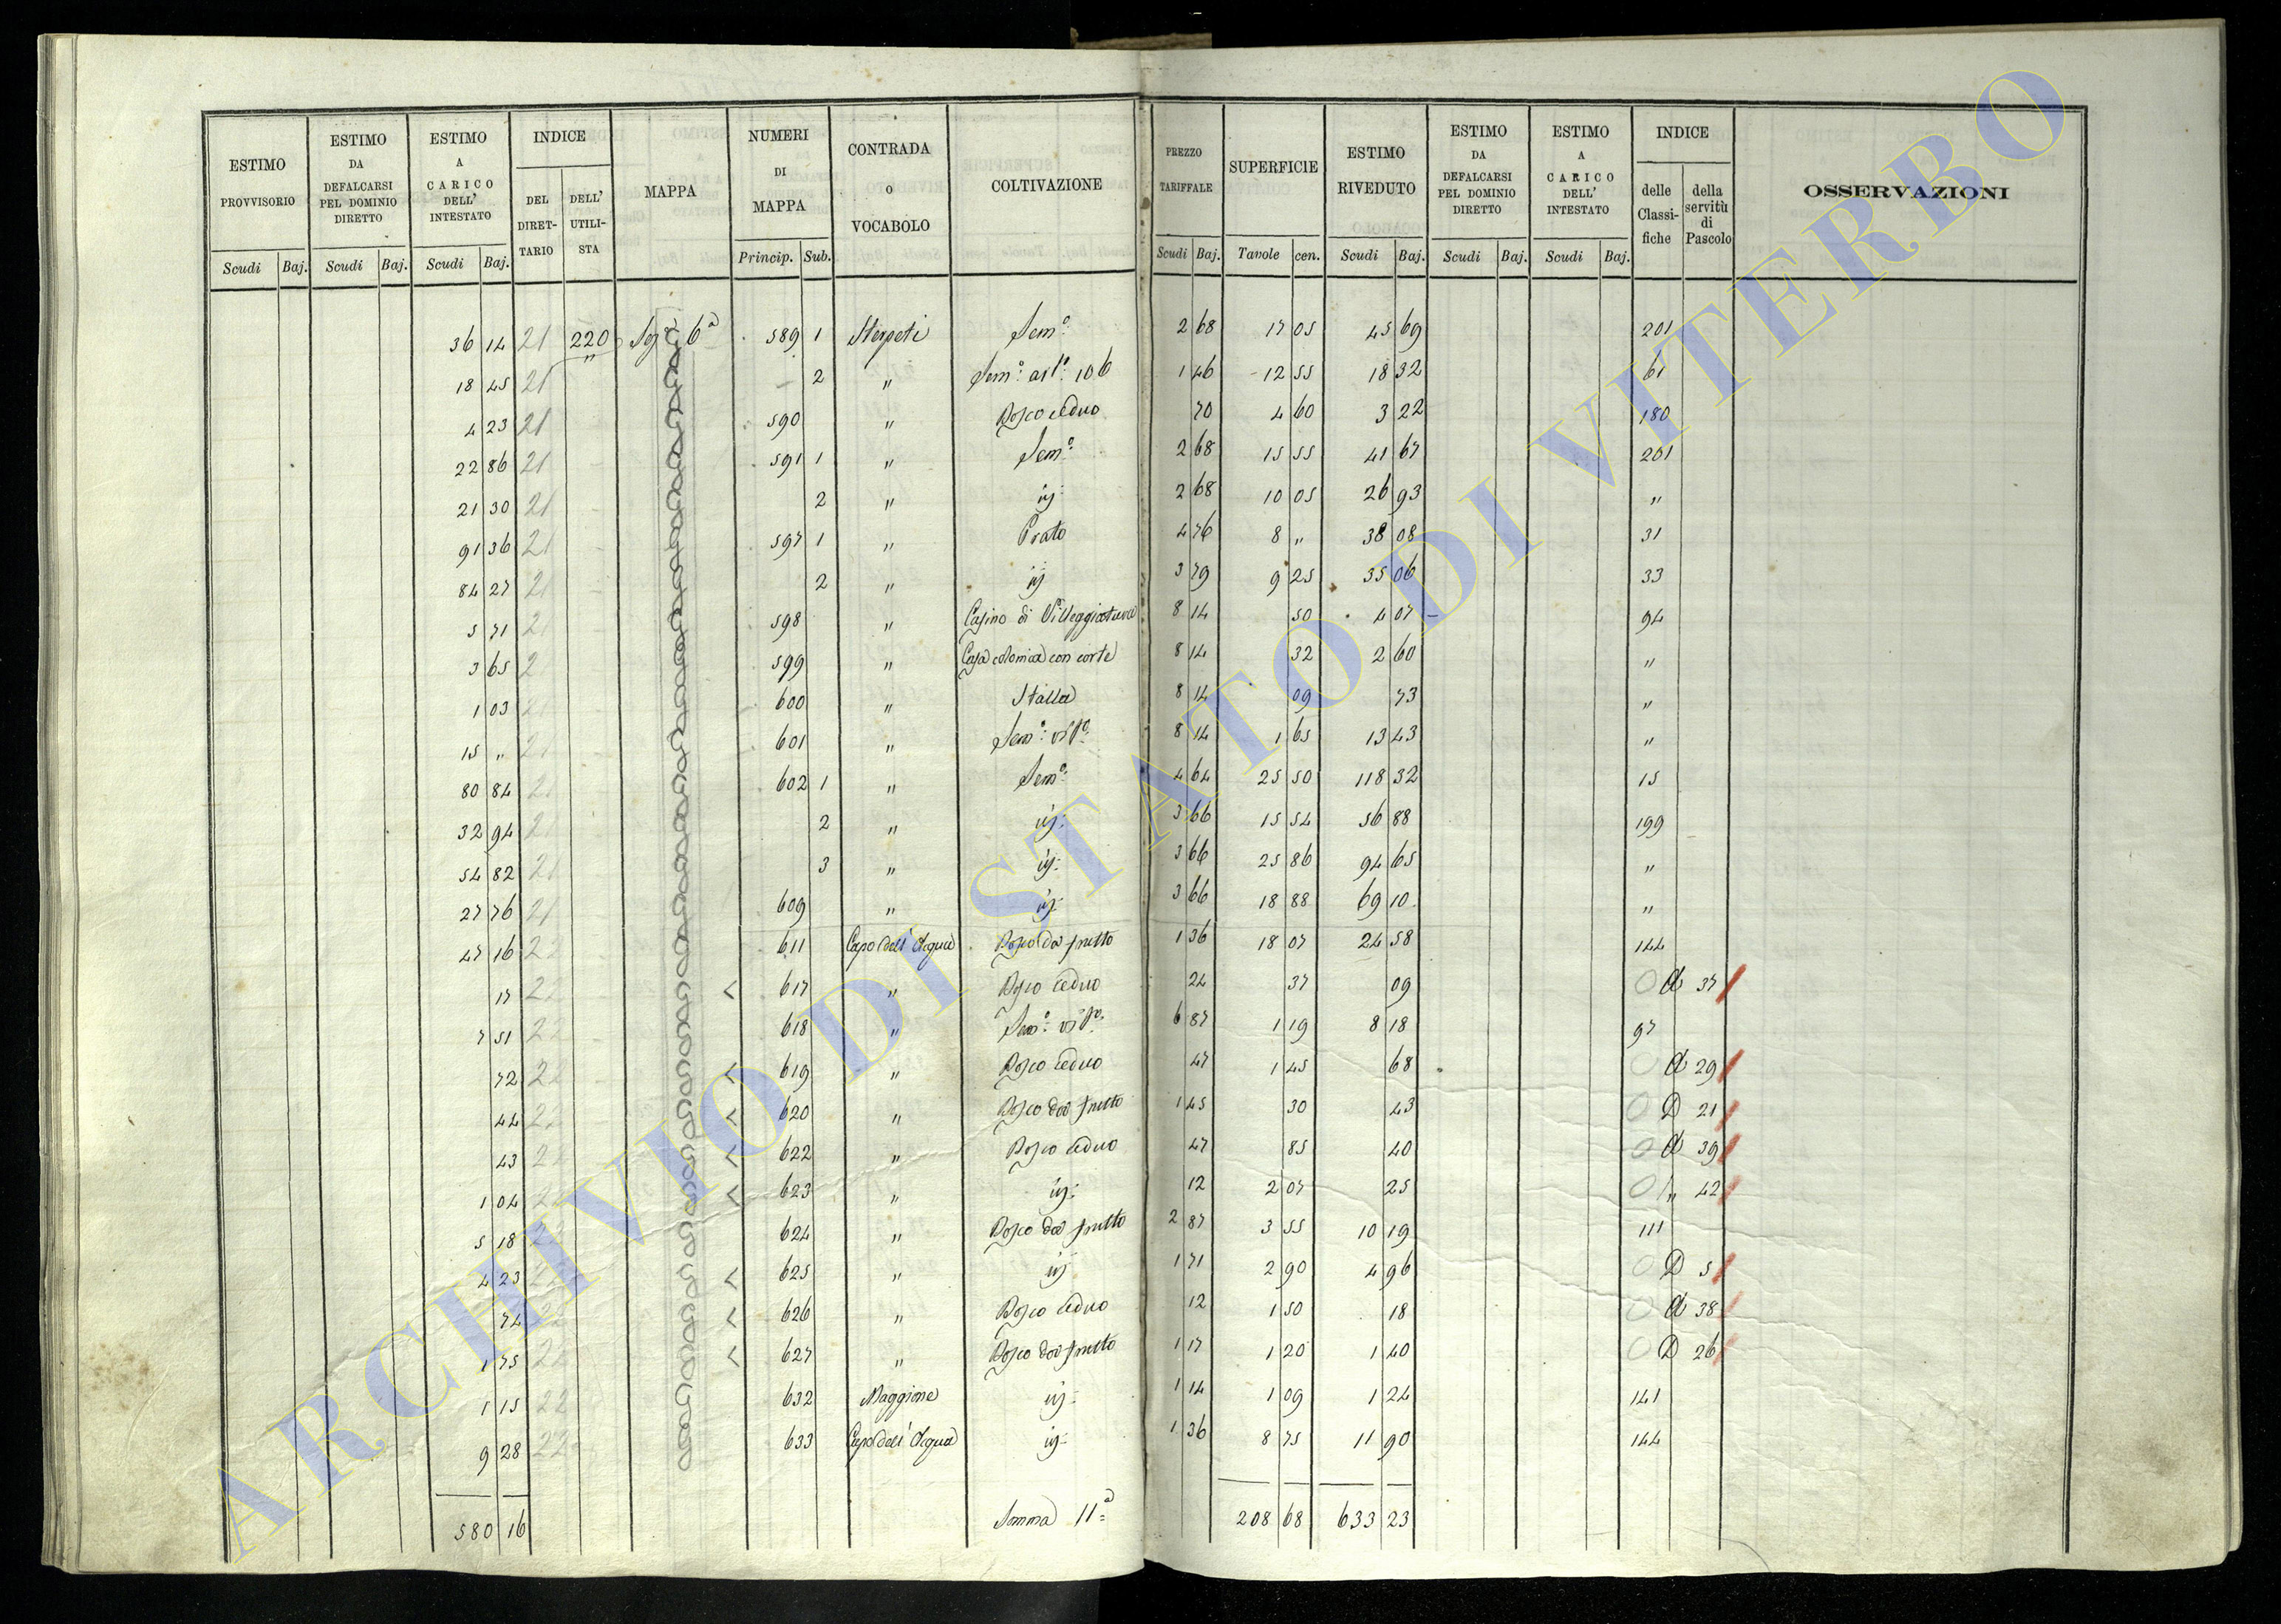 ESTIMO PROVVISORIO
ESTIMO DA DEFALCARSI PEL DOMINIO DIRETTO
ESTIMO A CARICO DELL' INTESTATO
INDICE
DEL DIRETTARIO
DELL' UTILISTA
MAPPA
NUMERI DI MAPPA
CONTRADA O VOCABOLO
COLTIVAZIONE
PREZZO TARIFFALE
SUPERFICIE
ESTIMO RIVEDUTO
ESTIMO DA DEFALCARSI PEL DOMINIO DIRETTO
ESTIMO A CARICO DELL' INTESTATO
INDICE
delle Classifiche
della servitù di Pascolo
OSSERVAZIONI
Scudi Baj. Scudi Baj. Scudi Baj. Princip. Sub. Scudi Baj. Tavole cen. Scudi Baj. Scudi Baj. Scudi Baj.
36 14 21 220 Sez. 6ª 589 1 Sterpeti Sem.º 2 68 17 05 45 69 201
18 45 21 " 2 " Sem.º 106 1 46 12 55 18 32 61
4 23 21 590 " Bosco ceduo 70 4 60 3 22 180
22 86 21 591 1 " Sem.º 2 68 15 55 41 67 201
21 30 21 2 " id. 2 68 10 05 26 93 "
91 36 21 597 1 " Prato 4 76 8 " 38 08 31
84 27 21 2 " id. 3 79 9 25 35 06 33
5 71 21 598 " Casino di Villeggiatura 8 14 50 4 07 94
3 65 2 599 " Casa colonica con corte 8 14 32 2 60 "
1 03 21 600 " Stalla 8 14 09 73 "
15 " 21 601 " Sem.º vit.º 8 14 1 65 13 43 "
80 84 21 602 1 " Sem.º 4 64 25 50 118 32 15
32 94 21 2 " id. 3 66 15 54 56 88 199
54 82 21 3 " id. 3 66 25 86 94 65 "
27 76 21 609 " id. 3 66 18 88 69 10 "
47 16 22 611 Capo dell' Acqua Bosco da frutto 1 36 18 07 24 58 144
17 22 < 617 " Bosco ceduo 24 37 09 0 A 37
7 51 22 618 " Sem.º vit.º 6 87 1 19 8 18 97
72 22 < 619 " Bosco ceduo 47 1 45 68 0 A 29
44 22 < 620 " Bosco da frutto 1 45 30 43 0 D 21
43 22 < 622 " Bosco ceduo 47 85 40 0 A 39
1 04 22 < 623 " id. 12 2 07 25 0 " 42
5 18 22 624 " Bosco da frutto 2 87 3 55 10 19 111
4 23 22 < 625 " id. 1 71 2 90 4 96 0 D 5
74 22 < 626 " Bosco ceduo 12 1 50 18 0 A 38
1 75 22 < 627 " Bosco da frutto 1 17 1 20 1 40 0 D 26
1 15 22 632 Maggione id. 1 14 1 09 1 24 141
9 28 22 633 Capo dell' Acqua id. 1 36 8 75 11 90 144
580 16 Somma 11ª 208 68 633 23
ARCHIVIO DI STATO DI VITERBO